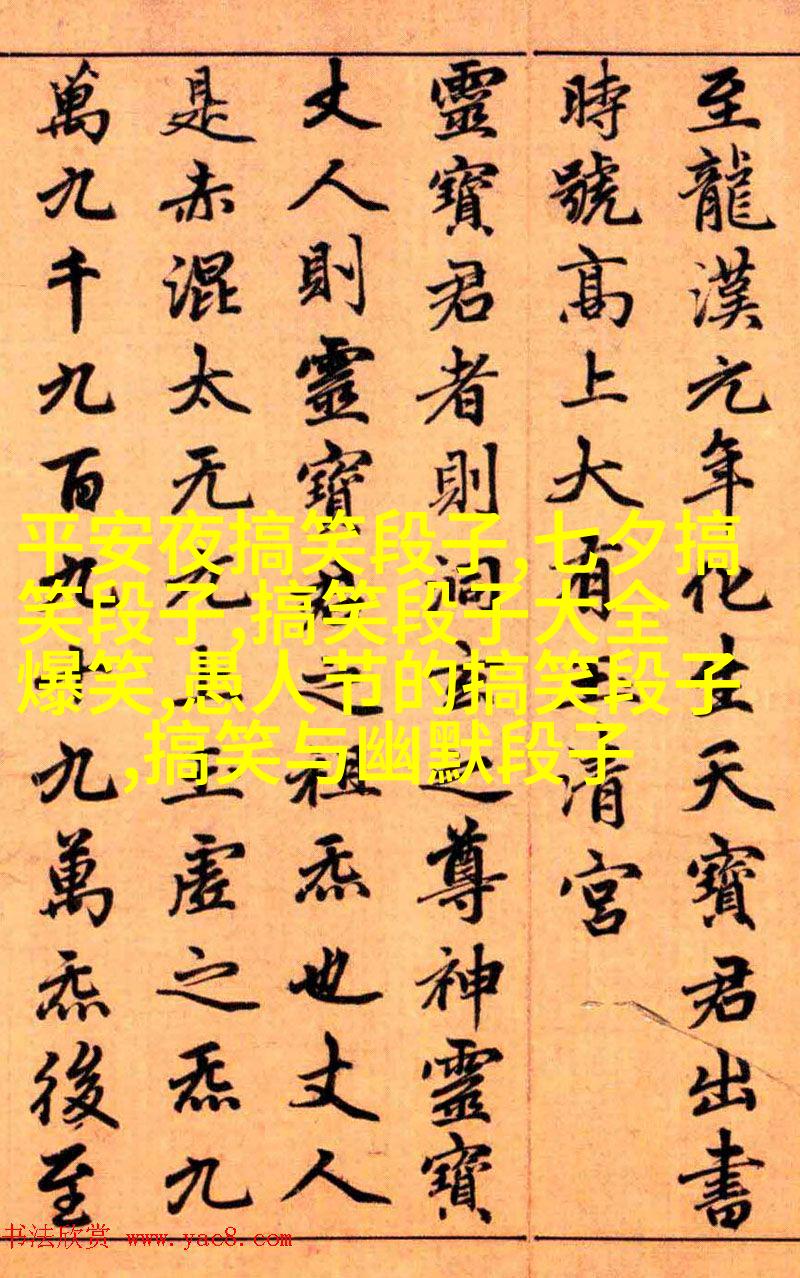 至龍漢元年化生天寶君出書
時號髙上大有玉清宮
靈寶君者則洞玄之尊神靈寶
丈人則靈寶君之祖炁也丈人
是赤混太无元上玉虛之炁九
萬九千九百九十九萬炁後至
平安夜搞笑段子,七夕搞
笑段子,搞笑段子大全
爆笑,愚人节的搞笑段子
,搞笑与幽默段子
书法欣赏 www.yac8.com